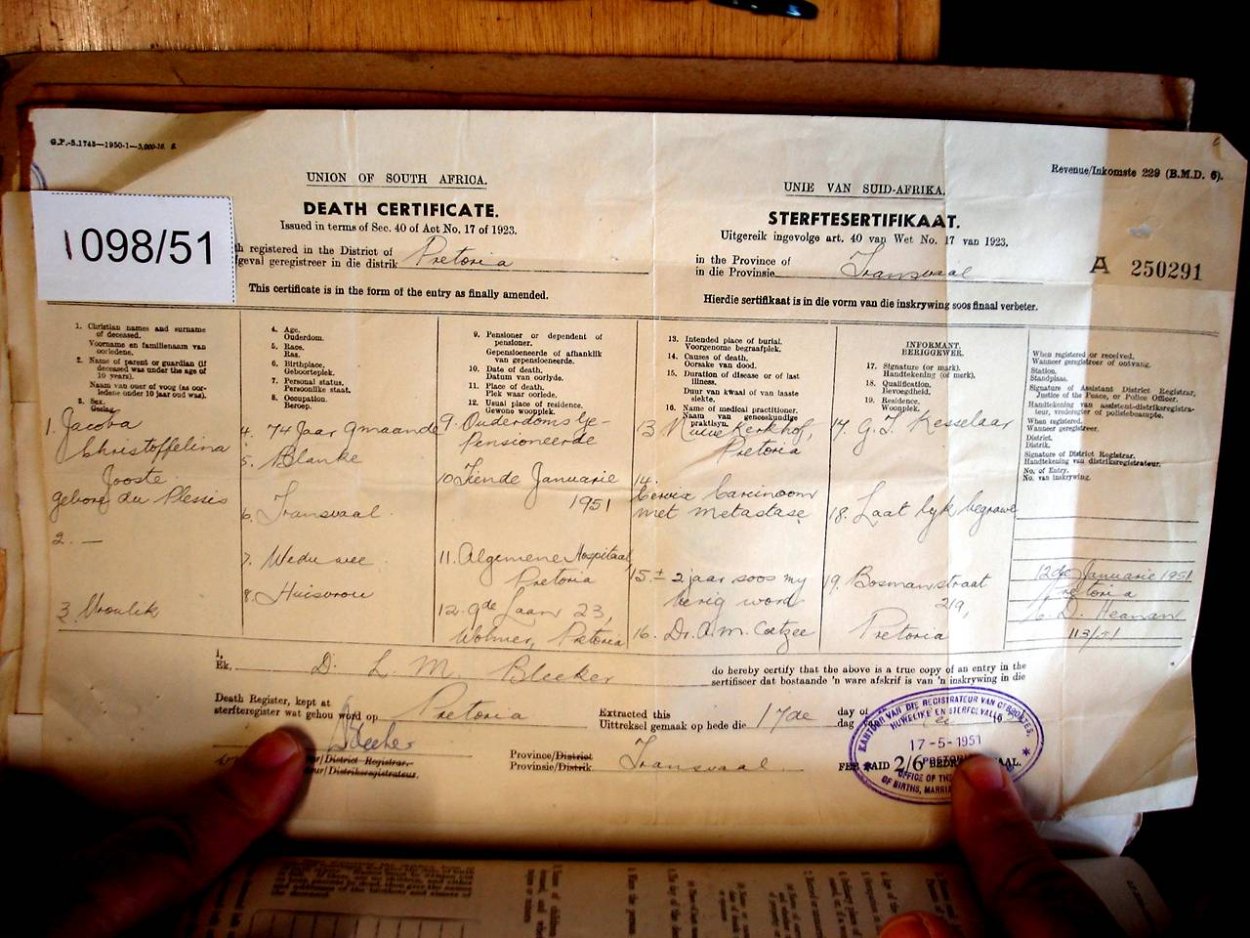 G.P.-S.1743—1950-1—3,000-10. S.
Revenue/Inkomste 229 (B.M.D. 6).
UNION OF SOUTH AFRICA.
UNIE VAN SUID-AFRIKA.
DEATH CERTIFICATE.
STERFTESERTIFIKAAT.
Issued in terms of Sec. 40 of Act No. 17 of 1923.
Uitgereik ingevolge art. 40 van Wet No. 17 van 1923.
1098/51
h registered in the District of
geval geregistreer in die distrik Pretoria
in the Province of
in die Provinsie Transvaal
A 250291
This certificate is in the form of the entry as finally amended.
Hierdie sertifikaat is in die vorm van die inskrywing soos finaal verbeter.
1. Christian names and surname
of deceased.
Voorname en familienaam van
oorledene.
2. Name of parent or guardian (if
deceased was under the age of
10 years).
Naam van ouer of voog (as oor-
ledene onder 10 jaar oud was).
3. Sex.
Geslag.
1. Jacoba
Christoffelina
Jooste
gebore du Plessis
2. —
3. Vroulik
4. Age.
Ouderdom.
5. Race.
Ras.
6. Birthplace.
Geboorteplek.
7. Personal status.
Persoonlike staat.
8. Occupation.
Beroep.
4. 74 Jaar 9 maande
5. Blanke
6. Transvaal.
7. Weduwee
8. Huisvrou
9. Pensioner or dependent of
pensioner.
Gepensioeneerde of afhanklik
van gepensioeneerde.
10. Date of death.
Datum van oorlyde.
11. Place of death.
Plek waar oorlede.
12. Usual place of residence.
Gewone woonplek.
9. Ouderdoms Ge-
Pensioneerde
10. Tiende Januarie
1951
11. Algemene Hospitaal
Pretoria
12. 9de Laan 23,
Wolmer, Pretoria
13. Intended place of burial.
Voorgenome begraafplek.
14. Causes of death.
Oorsake van dood.
15. Duration of disease or of last
illness.
Duur van kwaal of van laaste
siekte.
16. Name of medical practitioner.
Naam van geneeskundige
praktisyn.
13 Nuwe Kerkhof,
Pretoria
14.
Cervix Carcinoom
met metastase
15. ± 2 jaar soos my
berig word
16. Dr. A. M. Coetzee
INFORMANT.
BERIGGEWER.
17. Signature (or mark).
Handtekening (of merk).
18. Qualification.
Bevoegdheid.
19. Residence.
Woonplek.
17. G. J. Kesselaar
18. Laat lyk begrawe
19. Bosmanstraat
219,
Pretoria
When registered or received.
Wanneer geregistreer of ontvang.
Station.
Standplaas.
Signature of Assistant District Registrar,
Justice of the Peace, or Police Officer.
Handtekening van assistent-distriksregistra-
teur, vrederegter of polisiebeampte.
When registered.
Wanneer geregistreer.
District.
Distrik.
Signature of District Registrar.
Handtekening van distriksregistrateur.
No. of Entry.
No. van inskrywing.
12de Januarie 1951
Pretoria
D. Heanan
113/51
I,
Ek, D. L. M. Bleeker
do hereby certify that the above is a true copy of an entry in the
sertifiseer dat bostaande 'n ware afskrif is van 'n inskrywing in die
Death Register, kept at
sterfteregister wat gehou word op Pretoria
Extracted this
Uittreksel gemaak op hede die 17de
day of
dag
Bleeker
/District Registrar.
/Distriksregistrateur.
Province/District
Provinsie/Distrik Transvaal
FEE PAID 2/6
KANTOOR VAN DIE REGISTRATEUR VAN GEBOORTES,
HUWELIKE EN STERFGEVALLE
17-5-1951
OFFICE OF THE
OF BIRTHS, MARRIA